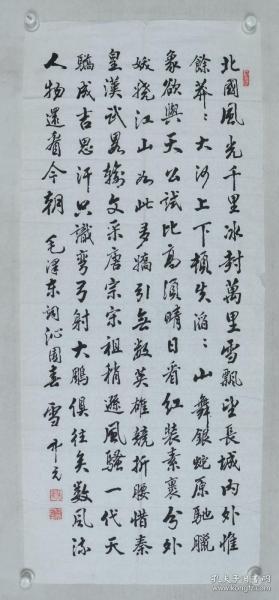 北國風光千里冰封萬里雪飄望長城內外惟
餘莽：大河上下頓失滔：山舞銀蛇原馳臘
象欲與天公試比高須晴日看紅裝素裹分外
妖嬈江山如此多嬌引無數英雄競折腰惜秦
皇漢武畧輸文采唐宗宋祖稍遜風騷一代天
驕成吉思汗只識彎弓射大鵰俱往矣數風流
人物還看今朝 毛澤東詞沁園春 雪
孔夫子旧书网